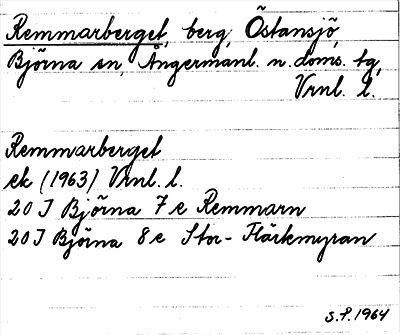 Remmarberget, berg, Östansjö,
Björna sn, Ångermanl. n. doms. tg,
Vrnl. l.
Remmarberget
ek (1963) Vrnl. l.
20 J Björna 7 e Remmarn
20 J Björna 8 e Stor-Flärkmyran
S.P. 1964